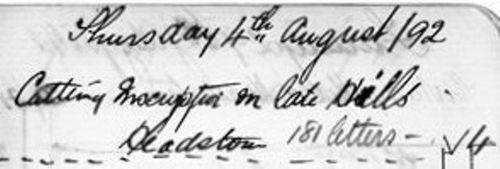 Thursday 4th August /92
Cutting Inscription on late Hills
Headstone 181 letters - √ 4